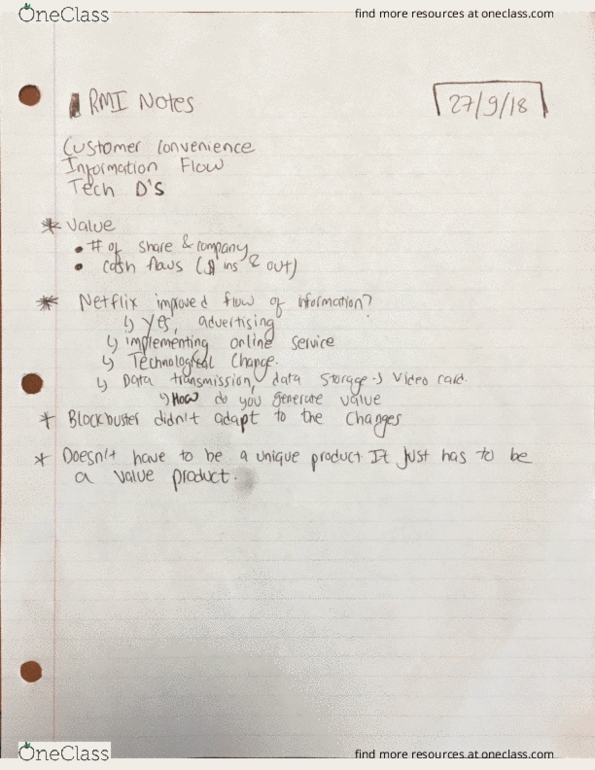 OneClass
find more resources at oneclass.com
RMI Notes
27/9/18
Customer Convenience
Information Flow
Tech D'S
* Value
• # of share & company
• cash flows ($ ins & out)
* Netflix improved flow of information?
↳ Yes, advertising
↳ implementing online service
↳ Technological Change.
↳ Data transmission, data storage → Video card.
↳ How do you generate value
* Blockbuster didn't adapt to the Changes
* Doesn't have to be a unique product. It just has to be
a value product.
OneClass
find more resources at oneclass.com